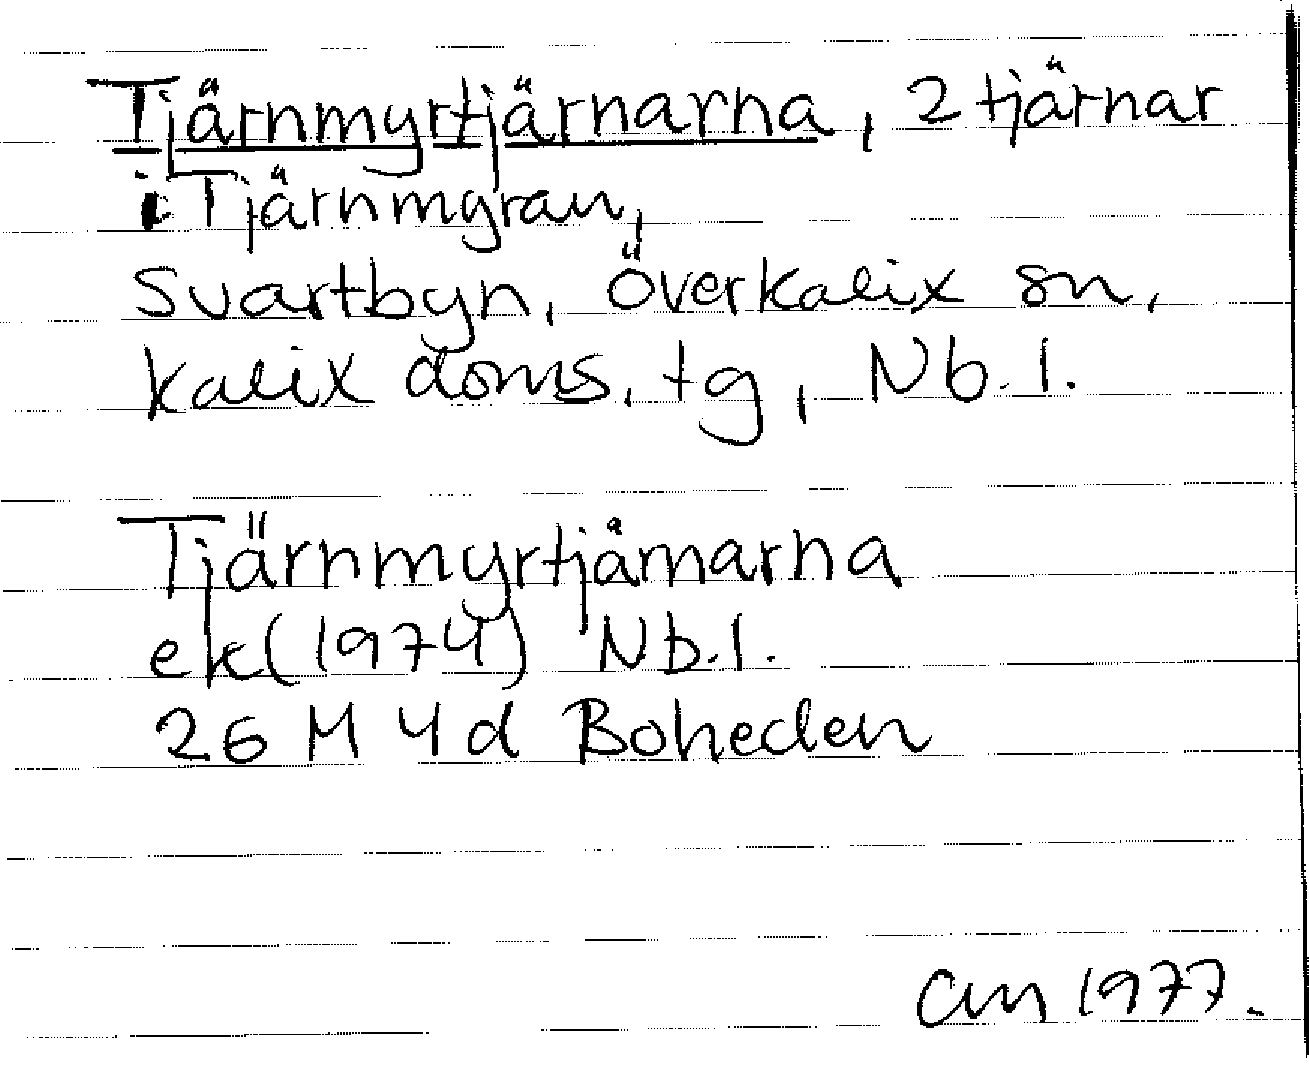 Tjärnmyrtjärnarna, 2 tjärnar
i Tjärnmyran,
Svartbyn, Överkalix sn,
Kalix doms. tg, Nb. l.
Tjärnmyrtjärnarna
ek (1974) Nb. l.
26 M 4d Boheden
am 1977.